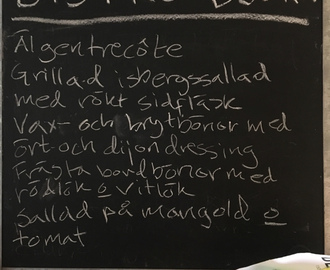 Älgentrecôte
Grillad isbergssallad
med rökt sidfläsk
Vax- och brytbönor med
ört och dijondressing
Frästa bondbönor med
rödlök o vitlök
Sallad på mangold o
tomat